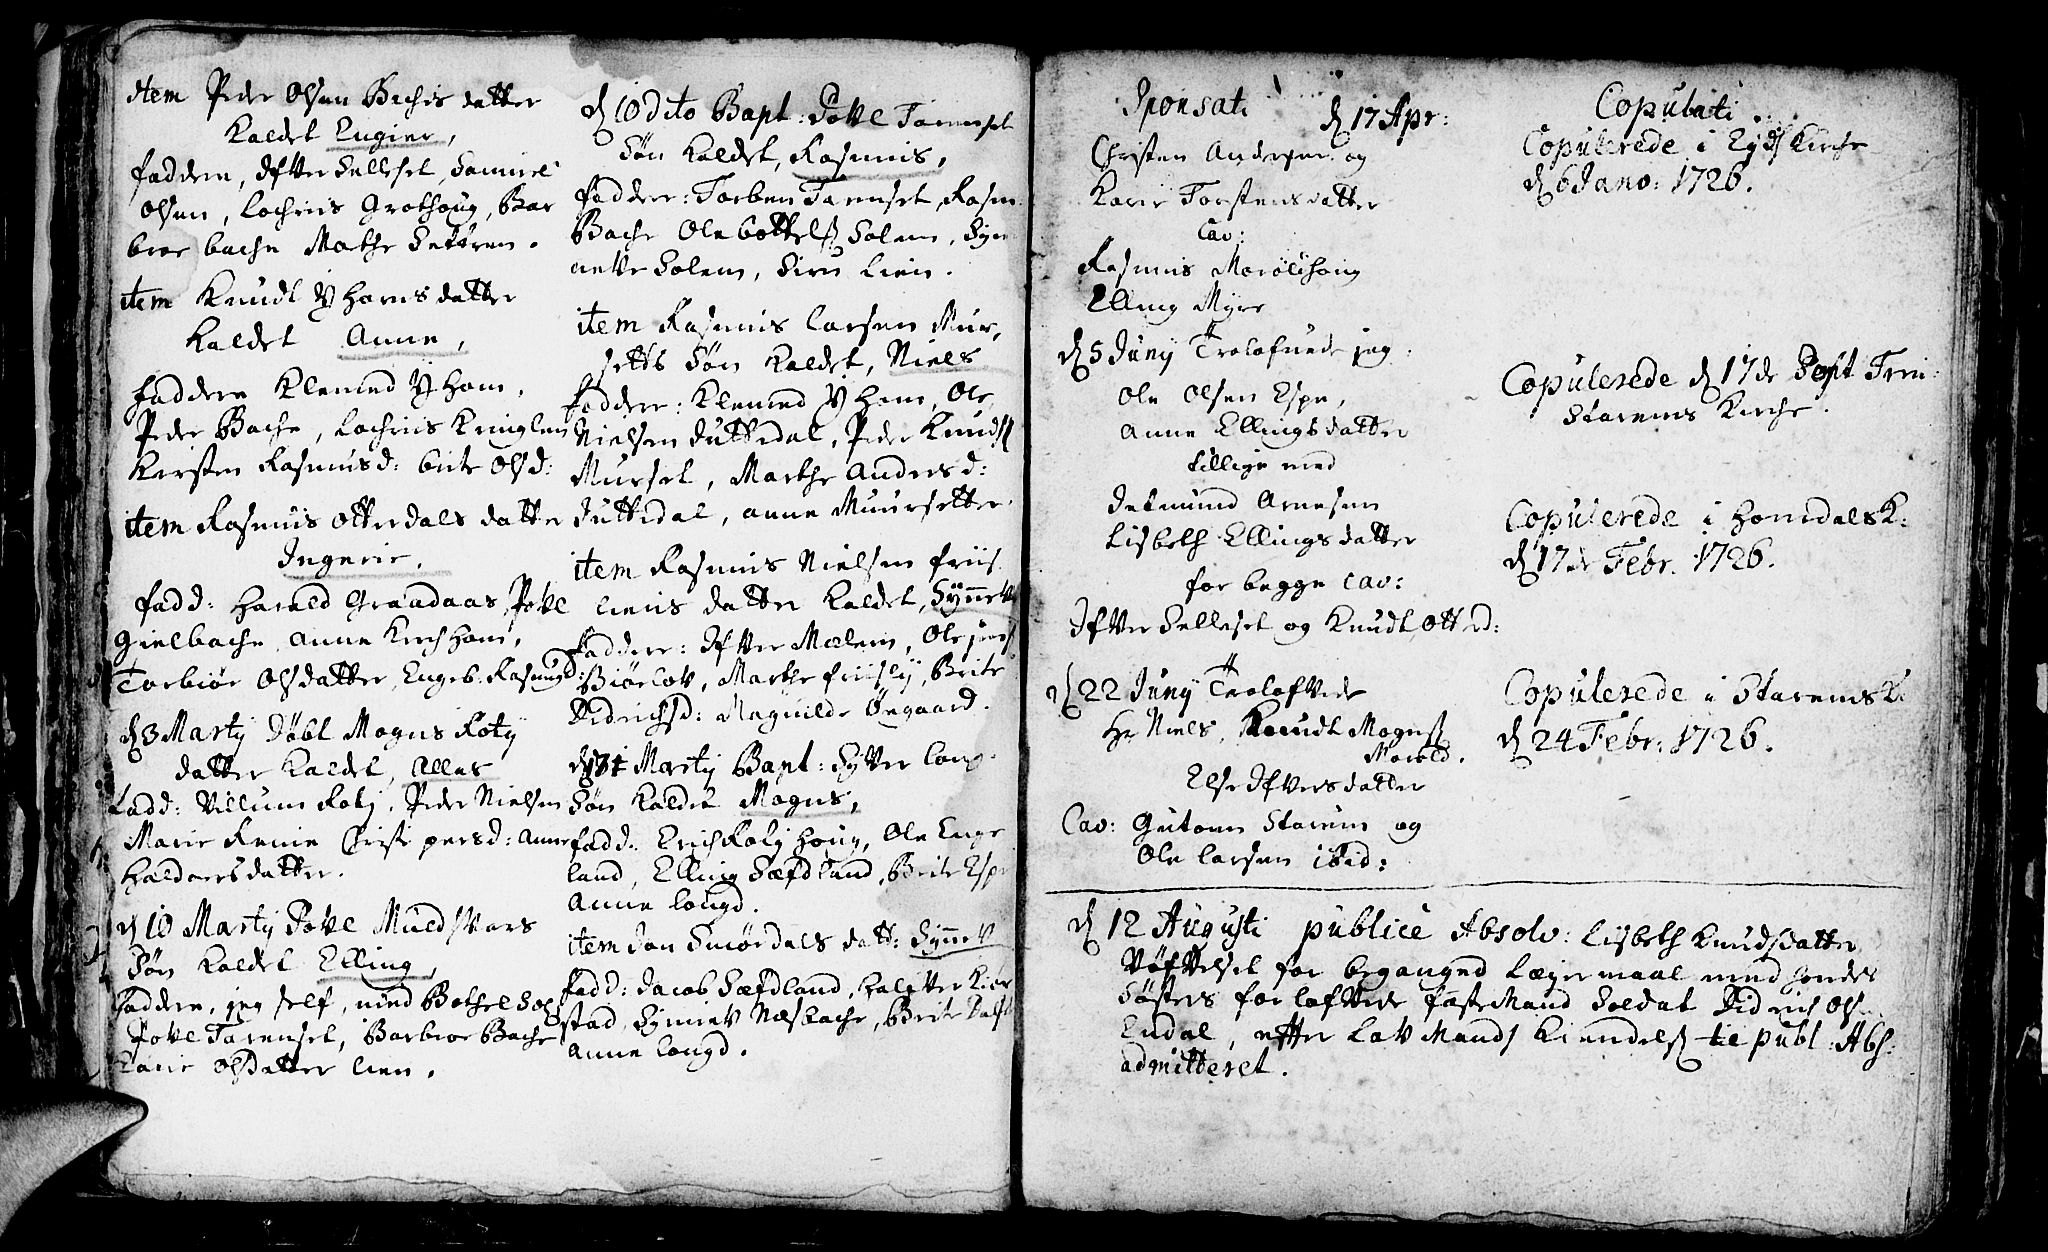 item Peder Olsen Bachis datter
kaldet Engier,
faddere, Ifver Selleset, Samuel
Olsen, Lochris Grothoug, Bar
broe bache Marthe Setøren.
item Knudt Yhoms datter
kaldet Anne,
faddere Klemed Yhom,
Peder Bache, Lochris Kringlen
Kirsten Rasmusd: Birte Olsd:
item Rasmus Otterdals datter
Ingerie.
fadd: Harald Grandaas, Povl
Gielbache, Anne Kirchhom,
Torbiør Olsdatter, Engeb. Rasmusd:
d 3 Martij Døbt Mogns Roty
datter kaldet, Alles
fadd: Villum Roty, Peder Nielsen
Marie Renie Christ persd: Anne
Haldoersdatter.
d 10 Martij Povl Muldsvors
Søn kaldet Elling,
faddere, jeg self, med Bothel Sol
Povl Tarenset, Barbroe Bache
Karie Olsdatter lien.
d 10 dito Bapt: Povl Tarenset
Søn kaldet, Rasmus,
faddere: Torben Tarenset, Rasm
Bache Ole bottels Solem, Syn
nette Solem, Siru lien.
item Rasmus Larsen Mur,
setts Søn kaldet, Niels
faddere: Klemed Yhom, Ole
Nielsen Juttedal, Peder Knuds
Murset, Marthe Andersd:
Juttedal, anne Muursetter.
item Rasmus Nielsen friis
liens datter kaldet, Synnev
faddere: Ifver Mælem, Ole jens
Biørlov, Marthe friisly, Brite
Didrichsd: Magnilde Øegaard.
d 31 Martij Bapt: Syver long
Søn kaldet Mogns,
fadd: Erich Roty houg, Ole Enge
land, Elling Sæfdland, Brite Espe
Anne longd.
item Jon Smørdals datt: Synnev
fadd: Jacob Sæfdland, Halfver Kior
stad, Synnev Næsbache, Brite Dalsb
Anne longd.
Sponsati d 17 Apr:
Christen Andersen og
Karie Torstensdatter
Cav:
Rasmus Maroldhoug
Elling Myre
d 5 Junij Trolofvede jeg:
Ole Olsen Espe,
Anne Ellingsdatter
tillige med
Detmund Arnesen
Lisbeth Ellingsdatter
for begge Cav:
Ifver Selleset og Knudt Otterd:
d 22 Junij Trolofvede
Hr Niels, Knudt Mogns
Marold.
Else Ifversdatter
Cav: Gutorm Starem og
Ole Larsen ibid:
Copulati.
Copulerede i Eyds Kirche
d 6 Jano: 1726.
Copulerede d 17de Post Trin:
Starems Kirche.
Copulerede i Horndals K:
d 17de Febr. 1726.
Copulerede i Starems K:
d 24 Febr: 1726.
d 12 Augusti publicè Absolv: Lisbeth Knudsdatter
Vøfvelset for beganged Leyermaal med hendes
Søsters forlofvede fæste Mand Soldat Didrich Ols
Endal, efter Lav Mands Kiendelse til publ: Abs:
admitteret.